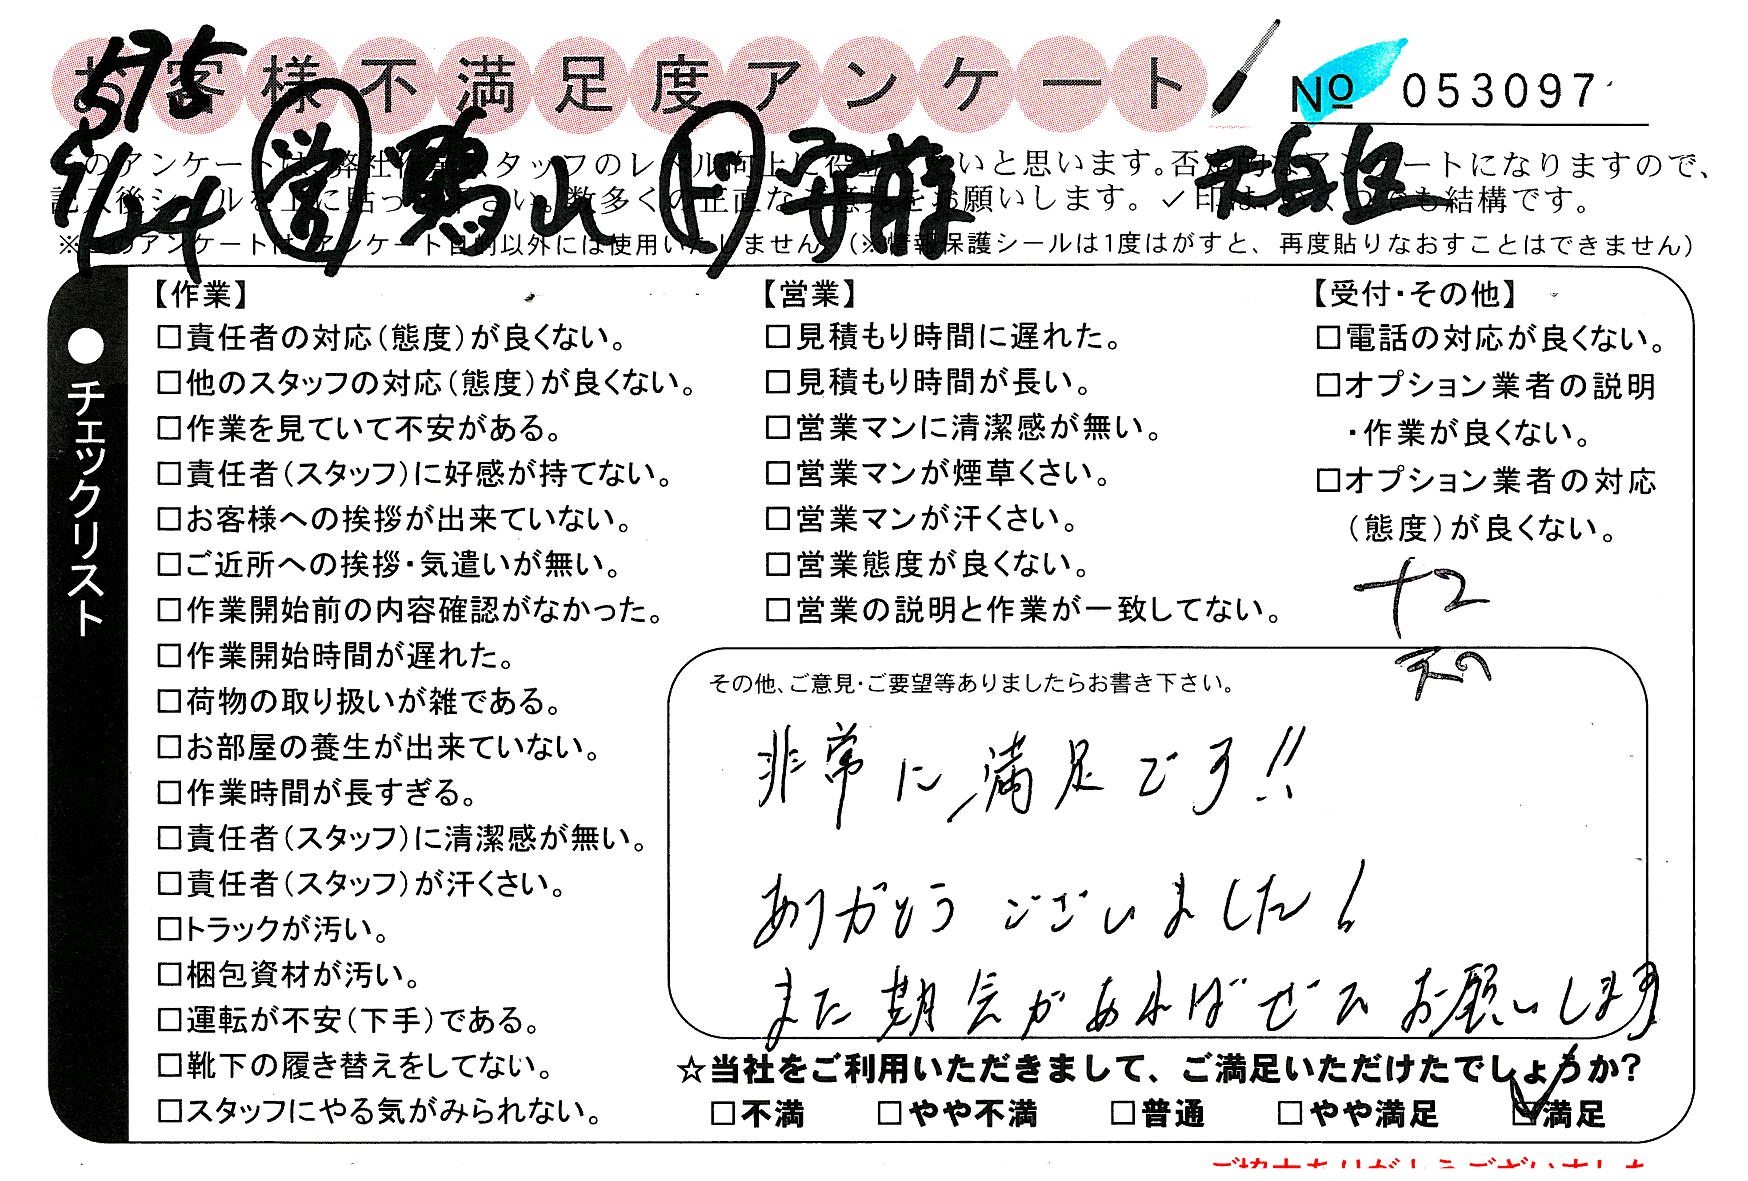 お客様不満足度アンケート
№ 053097
575
9/24 営 鴨山 ド 安藤 天白区
このアンケートは、弊社作業スタッフのレベル向上に役立てたいと思います。否定的なアンケートになりますので、
記入後シールを上に貼って下さい。数多くの正直なご意見をお願いします。✓印は、いくつでも結構です。
※このアンケートは、アンケート目的以外には使用いたしません。(※情報保護シールは1度はがすと、再度貼りなおすことはできません)
●チェックリスト
【作業】
□責任者の対応(態度)が良くない。
□他のスタッフの対応(態度)が良くない。
□作業を見ていて不安がある。
□責任者(スタッフ)に好感が持てない。
□お客様への挨拶が出来ていない。
□ご近所への挨拶・気遣いが無い。
□作業開始前の内容確認がなかった。
□作業開始時間が遅れた。
□荷物の取り扱いが雑である。
□お部屋の養生が出来ていない。
□作業時間が長すぎる。
□責任者(スタッフ)に清潔感が無い。
□責任者(スタッフ)が汗くさい。
□トラックが汚い。
□梱包資材が汚い。
□運転が不安(下手)である。
□靴下の履き替えをしてない。
□スタッフにやる気がみられない。
【営業】
□見積もり時間に遅れた。
□見積もり時間が長い。
□営業マンに清潔感が無い。
□営業マンが煙草くさい。
□営業マンが汗くさい。
□営業態度が良くない。
□営業の説明と作業が一致してない。
【受付・その他】
□電話の対応が良くない。
□オプション業者の説明
・作業が良くない。
□オプション業者の対応
(態度)が良くない。
+2
その他、ご意見・ご要望等ありましたらお書き下さい。
非常に満足です!!
ありがとうございました!
また機会があればぜひお願いします
☆当社をご利用いただきまして、ご満足いただけたでしょうか?
□不満 □やや不満 □普通 □やや満足 ☑満足
ご協力ありがとうございました